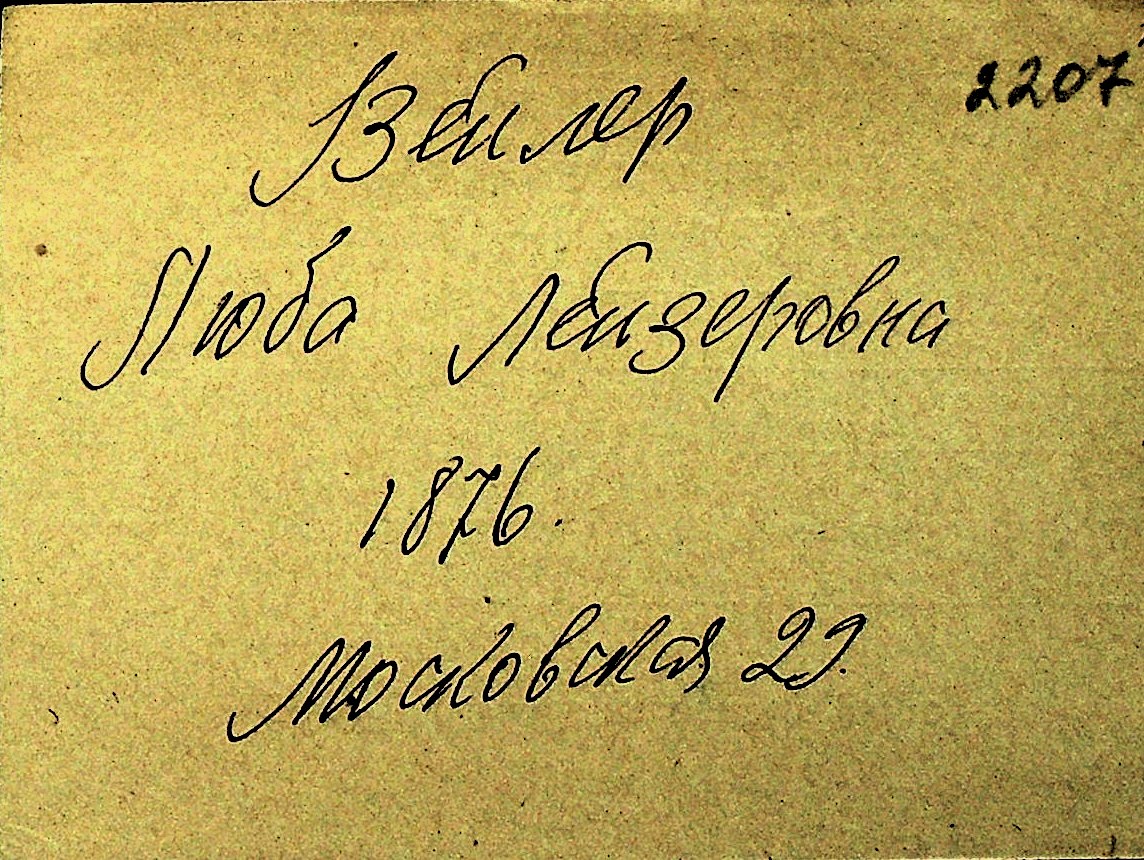 2207
Вейлер
Люба Лейзеровна
1876.
Московская 29.